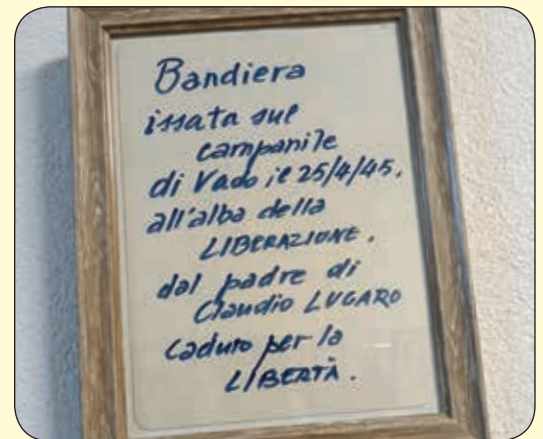 Bandiera
issata sul
campanile
di Vado il 25/4/45,
all'alba della
LIBERAZIONE.
dal padre di
Claudio LUGARO
caduto per la
LIBERTÀ.